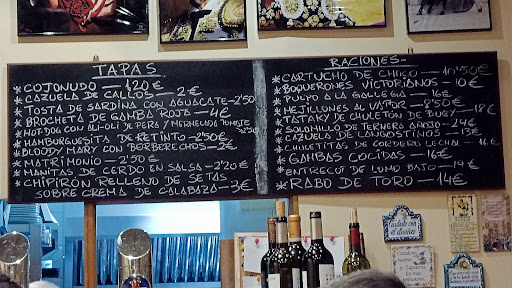 TAPAS
* COJONUDO — 1'20 €
* CAZUELA DE CALLOS — 2 €
* TOSTA DE SARDINA CON AGUACATE - 2'50
* BROCHETA DE GAMBA ROJA — 4 €
* HOT DOG CON ALI-OLI DE PERA Y MERMELADA TOMATE
* HAMBURGUESITA DE RETINTO - 2'50€
* BLOODY MARY CON BERBERECHOS - 2€
* MATRIMONIO — 2'50 €
* MANITAS DE CERDO EN SALSA - 2'20 €
* CHIPIRÓN RELLENO DE SETAS
SOBRE CREMA DE CALABAZA - 3€
RACIONES-
* CARTUCHO DE CHOCO — 10'50€
* BOQUERONES VICTORIANOS - 10 €
* PULPO A LA GALLEGA - 16€
* MEJILLONES AL VAPOR - 8'50€
* TATAKY DE CHULETÓN DE BUEY - 18€
* SOLOMILLO DE TERNERA AÑEJO — 24€
* CAZUELA DE LANGOSTINOS - 13€
* CHULETITAS DE CORDERO LECHAL -
* GAMBAS COCIDAS — 16€
* ENTRECOT DE LOMO BAJO - 19 €
* RABO DE TORO — 14€